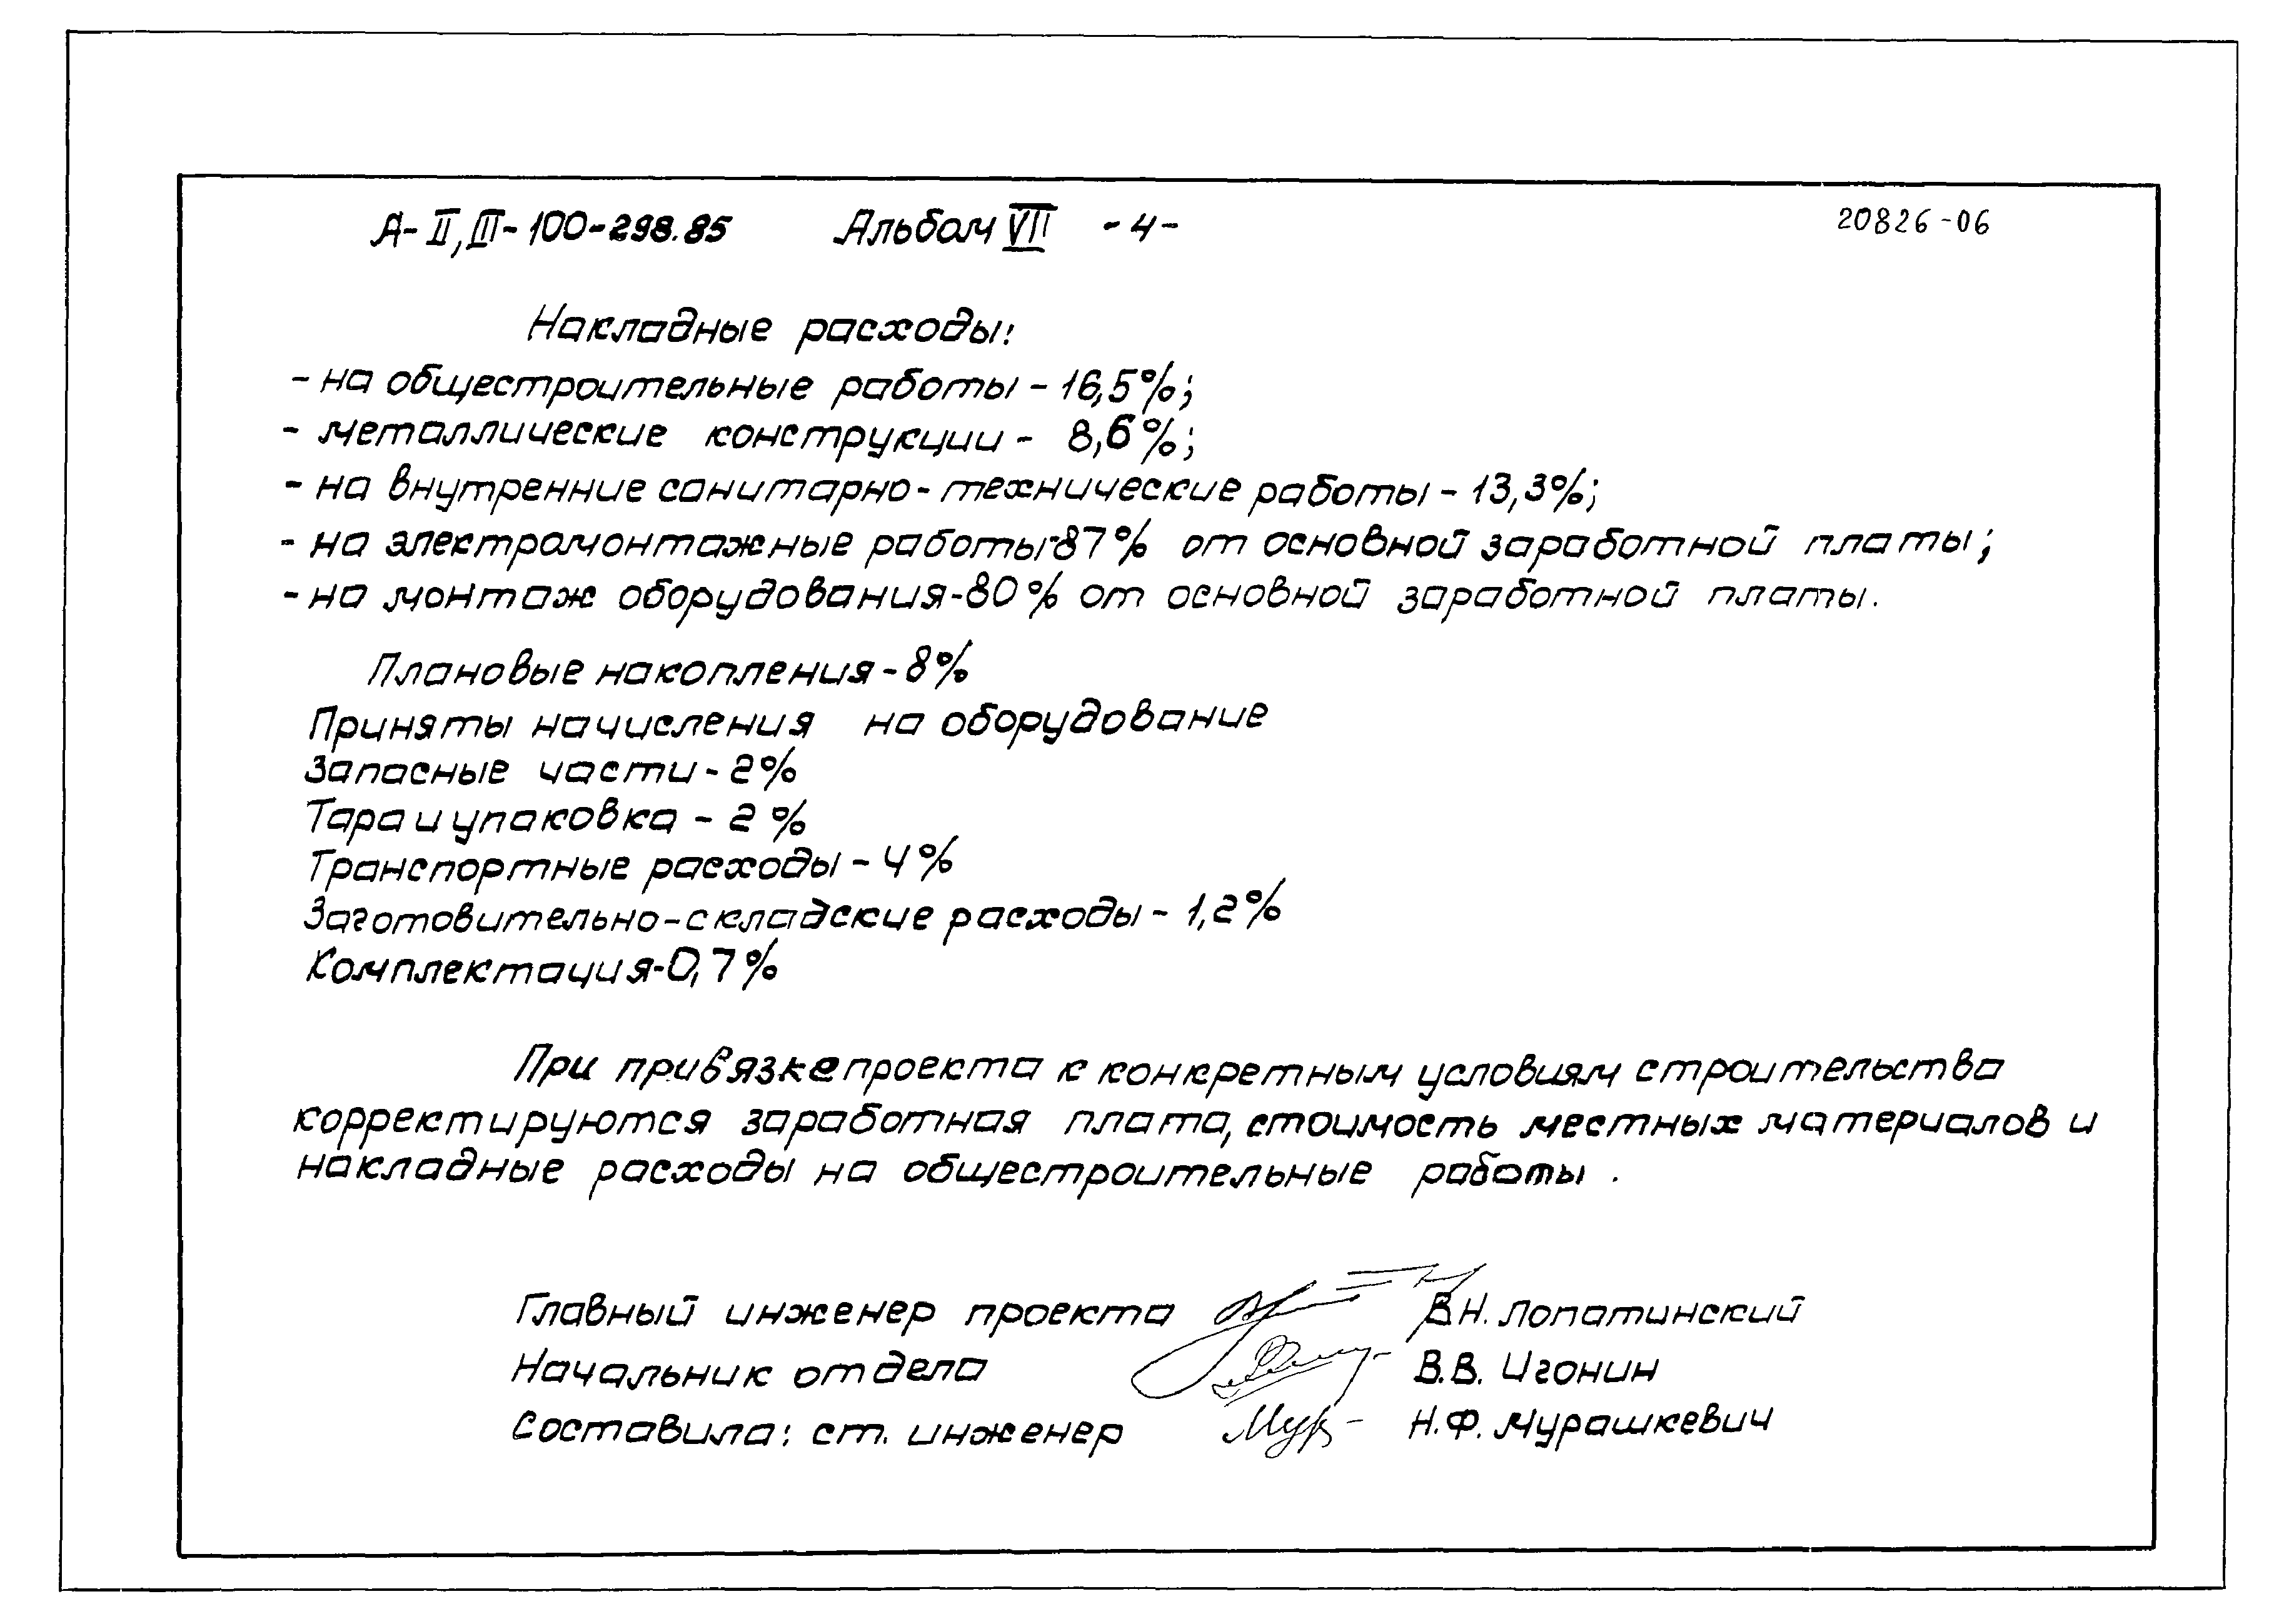 А-II,III-100-298.85 Альбом VII -4- 20826-06
Накладные расходы:
- на общестроительные работы - 16,5%;
- металлические конструкции - 8,6%;
- на внутренние санитарно-технические работы - 13,3%;
- на электромонтажные работы-87% от основной заработной платы;
- на монтаж оборудования-80% от основной заработной платы.
Плановые накопления-8%
Приняты начисления на оборудование
Запасные части-2%
Тара и упаковка - 2%
Транспортные расходы - 4%
Заготовительно-складские расходы - 1,2%
Комплектация-0,7%
При привязке проекта к конкретным условиям строительства
корректируются заработная плата, стоимость местных материалов и
накладные расходы на общестроительные работы.
Главный инженер проекта В.Н. Лопатинский
Начальник отдела В.В. Игонин
Составила: ст. инженер Мур Н.Ф. Мурашкевич